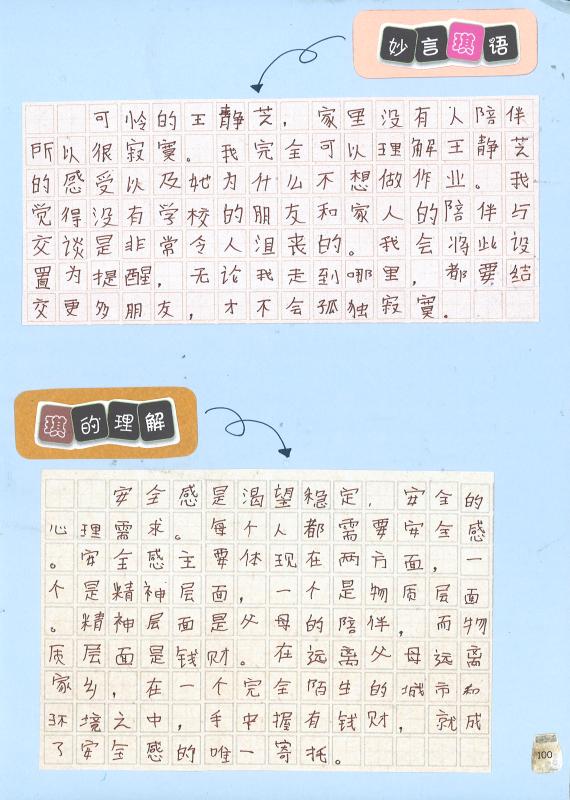 妙言琪语
可怜的王静芝，家里没有人陪伴
所以很寂寞。我完全可以理解王静芝
的感受以及她为什么不想做作业。我
觉得没有学校的朋友和家人的陪伴与
交谈是非常令人沮丧的。我会将此设
置为提醒，无论我走到哪里，都要结
交更多朋友，才不会孤独寂寞。
琪的理解
安全感是渴望稳定，安全的
心理需求。每个人都需要安全感
。安全感主要体现在两方面，一
个是精神层面，一个是物质层面
。精神层面是父母的陪伴，而物
质层面是钱财。在远离父母远离
家乡，在一个完全陌生的城市和
环境之中，手中握有钱财，就成
了安全感的唯一寄托。
100